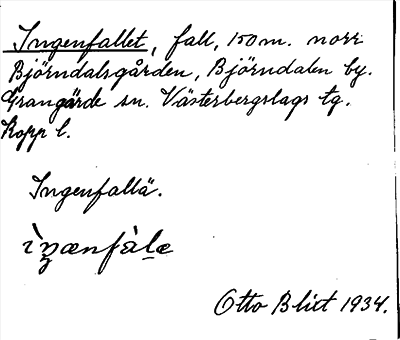 Ingenfallet, fall, 150 m. norr
Björndalsgården, Björndalen by.
Grangärde sn. Västerbergslags tg.
Kopp l.
Ingenfallä.
Otto Blixt 1934.